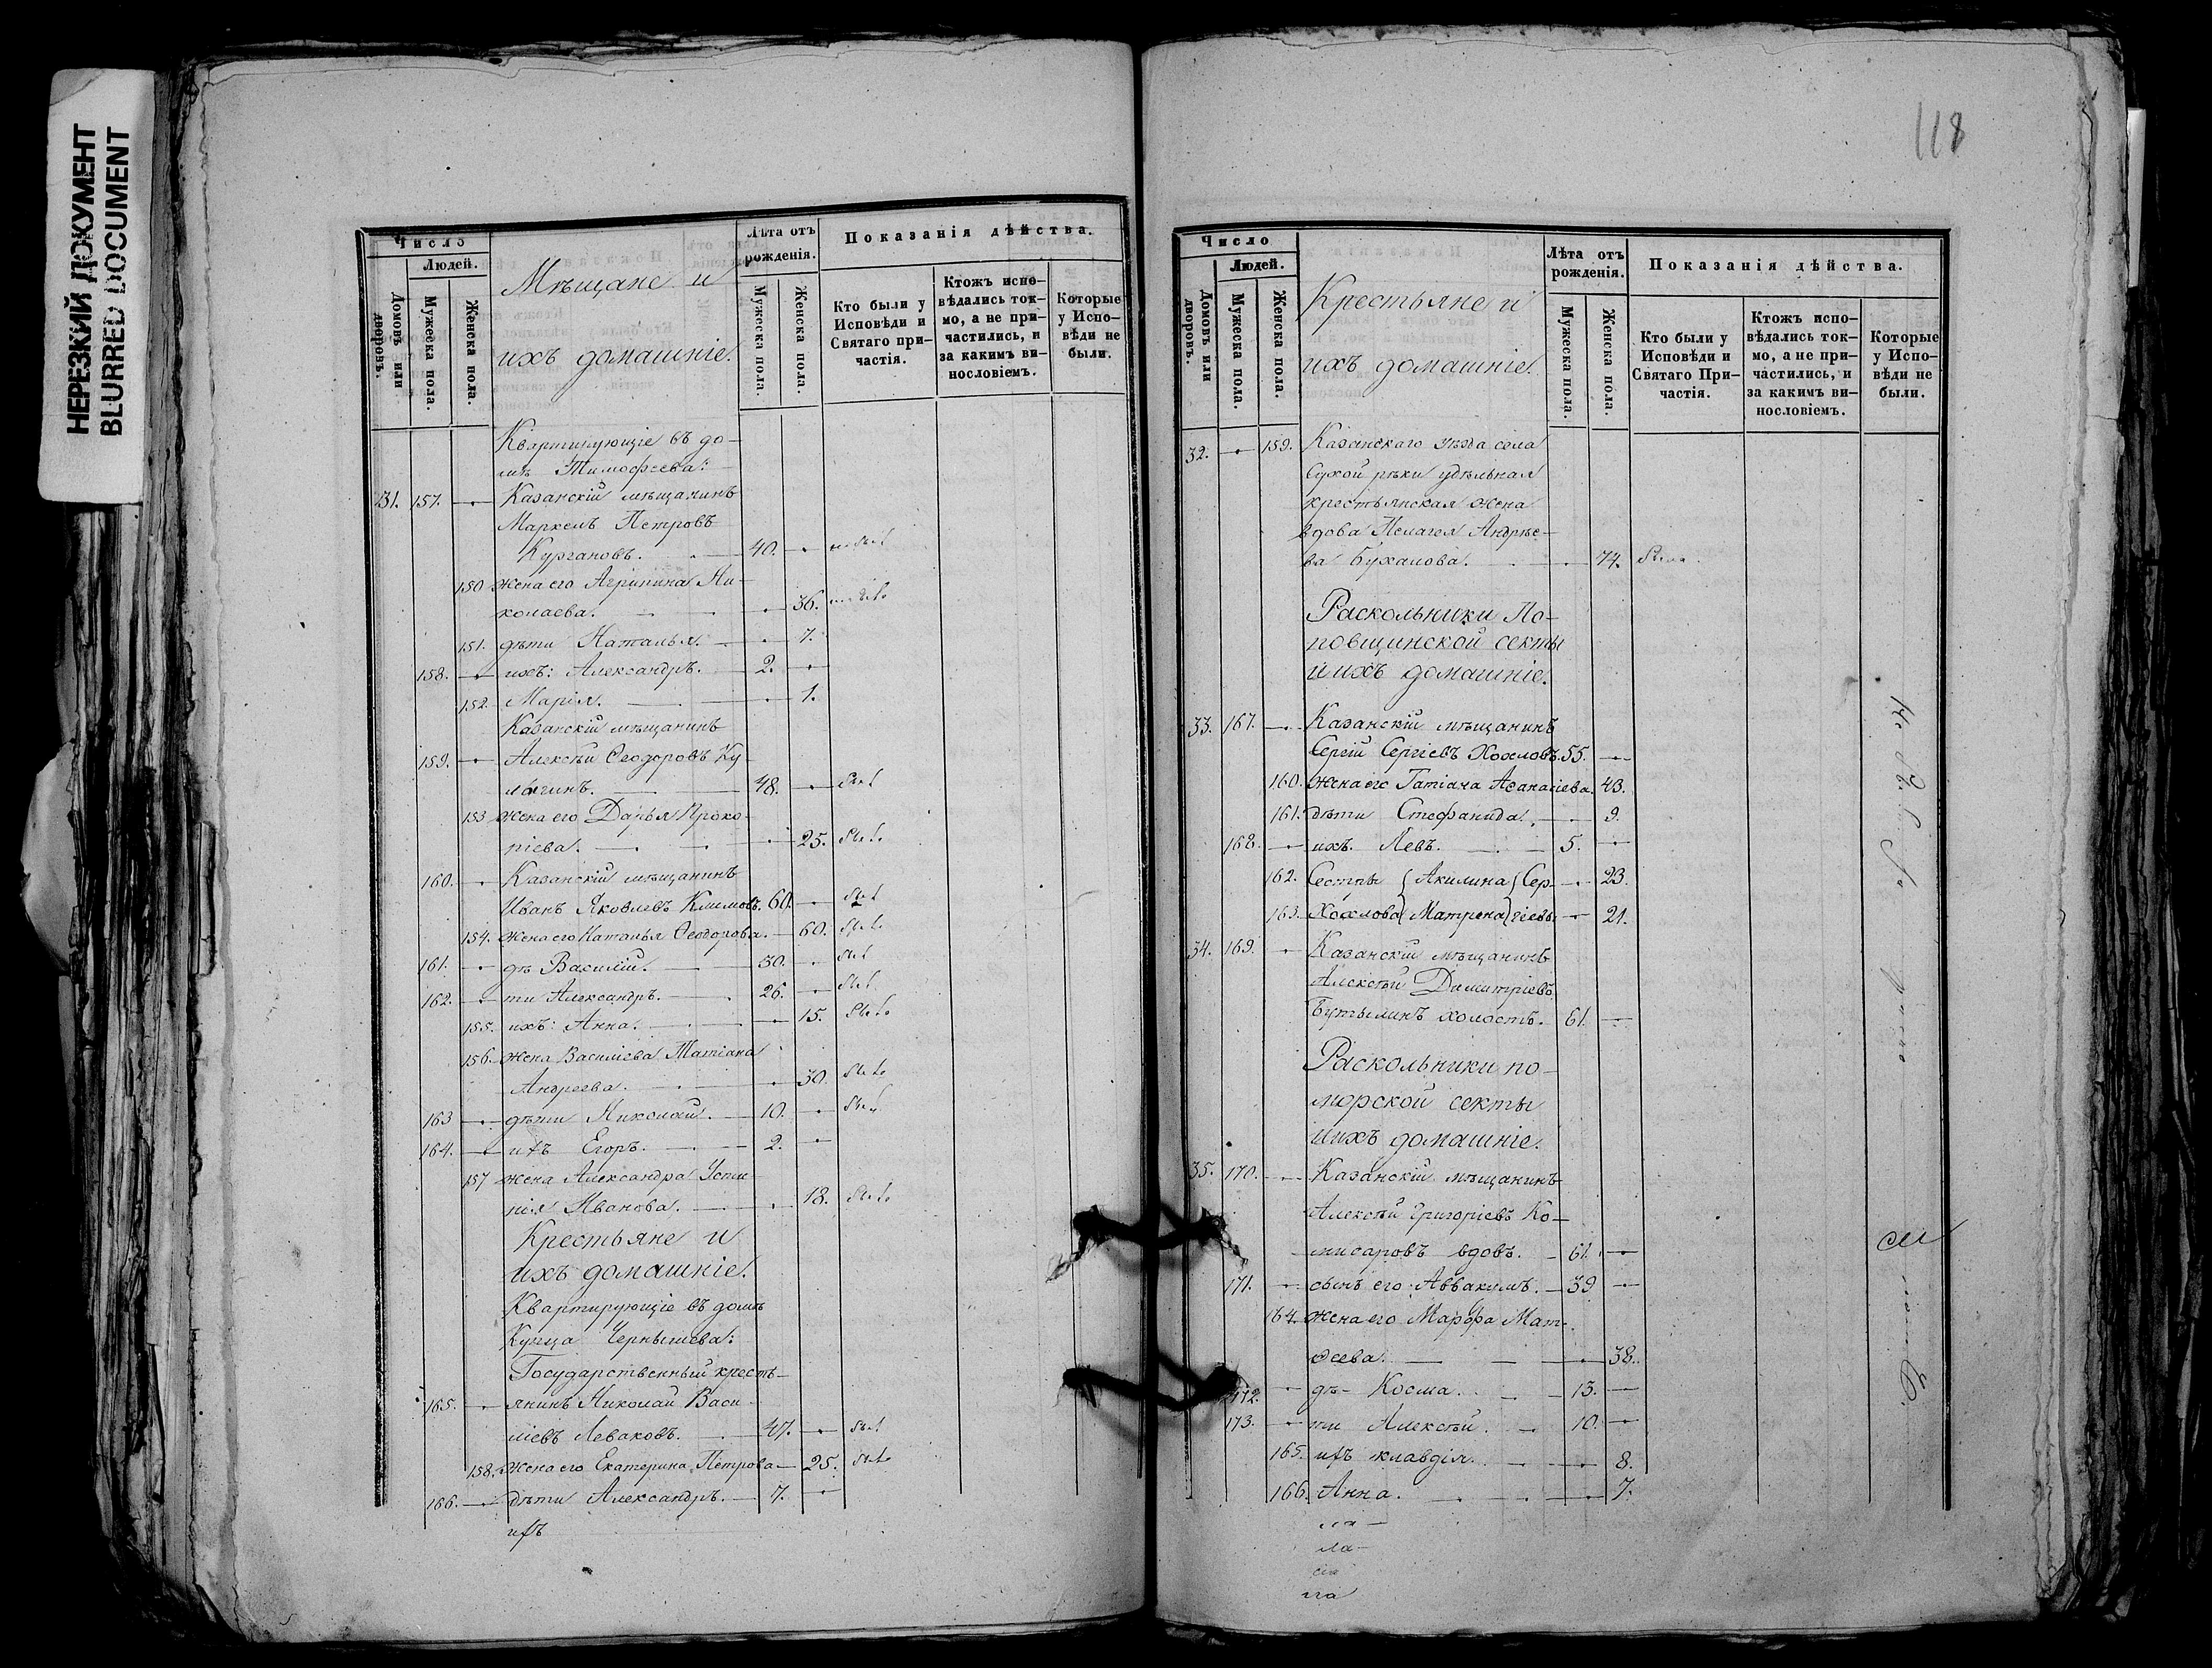 НЕРЕЗКИЙ ДОКУМЕНТ
BLURRED DOCUMENT
Число
Людей.
Домовъ или дворовъ.
Мужеска пола.
Женска пола.
Мѣщане и
ихъ домашніе.
Лѣта отъ рожденія.
Мужеска пола.
Женска пола.
Показанія дѣйства.
Кто были у Исповѣди и Святаго причастія.
Ктожъ исповѣдались токмо, а не причастились, и за какимъ винословіемъ.
Которые у Исповѣди не были.
Квартирующіе въ до-
мѣ Тимофеева:
131. 157. Казанскій мѣщанинъ
Маркелъ Петровъ
Кургановъ. 40.
150 жена его Агрипина Ни-
колаева. 36.
151. дѣти Наталья. 7.
158. ихъ: Александръ. 2.
152. Марія. 1.
Казанскій мѣщанинъ
159. Алексѣй Ѳеодоровъ Ку-
лагинъ. 48. был
153 жена его Дарья Проко-
піева. 25. была
160. Казанскій мѣщанинъ
Иванъ Яковлевъ Климовъ. 60. был
154. жена его Наталья Ѳеодорова. 60. была
161. дѣ Василій. 30. был
162. ти Александръ. 26. был
155. ихъ: Анна. 15. была
156. жена Василіева Татіана
Андреева. 30. была
163 дѣти Николай. 10. был
164. ихъ Егоръ. 2.
157 жена Александра Усти-
нія Иванова. 18. была
Крестьяне и
ихъ домашніе.
Квартирующіе въ домѣ
Купца Чернышева:
Государственный кресть-
165. янинъ Николай Васи-
ліевъ Леваковъ. 47. был
158. Жена его Екатерина Петрова 25. была
166. дѣти Александръ. 7.
ихъ
118
Число
Людей.
Домовъ или дворовъ.
Мужеска пола.
Женска пола.
Крестьяне и
ихъ домашніе.
Лѣта отъ рожденія.
Мужеска пола.
Женска пола.
Показанія дѣйства.
Кто были у Исповѣди и Святаго Причастія.
Ктожъ исповѣдались токмо, а не причастились, и за какимъ винословіемъ.
Которые у Исповѣди не были.
32. 159. Казанскаго уѣзда села
Сухой рѣки удѣльная
крестьянская жена
вдова Пелагея Андрѣе-
ва Буханова. 74. была
Раскольники По-
повщинской секты
и ихъ домашніе.
33. 167. Казанскій мѣщанинъ
Сергій Сергіевъ Хохловъ. 55.
160. Жена его Татіана Аѳанасіева. 43.
161. дѣти Стефанида. 9.
168. ихъ. Левъ. 5.
162. Сестры Акилина Сер- 23.
163. Хохлова Матрона гіевы 21.
34. 169. Казанскій мѣщанинъ
Алексѣй Димитріевъ
Бутылинъ холостъ. 61.
Раскольники по-
морской секты
и ихъ домашніе.
35. 170. Казанскій мѣщанинъ
Алексѣй Григоріевъ Ко-
мисаровъ вдовъ. 61.
171. сынъ его Аввакумъ. 39
164. Жена его Марѳа Мат-
ѳеева. 38.
172. дѣ- Косма. 13.
173. ти Алексѣй. 10.
165. ихъ клавдія. 8.
166. Анна. 7.